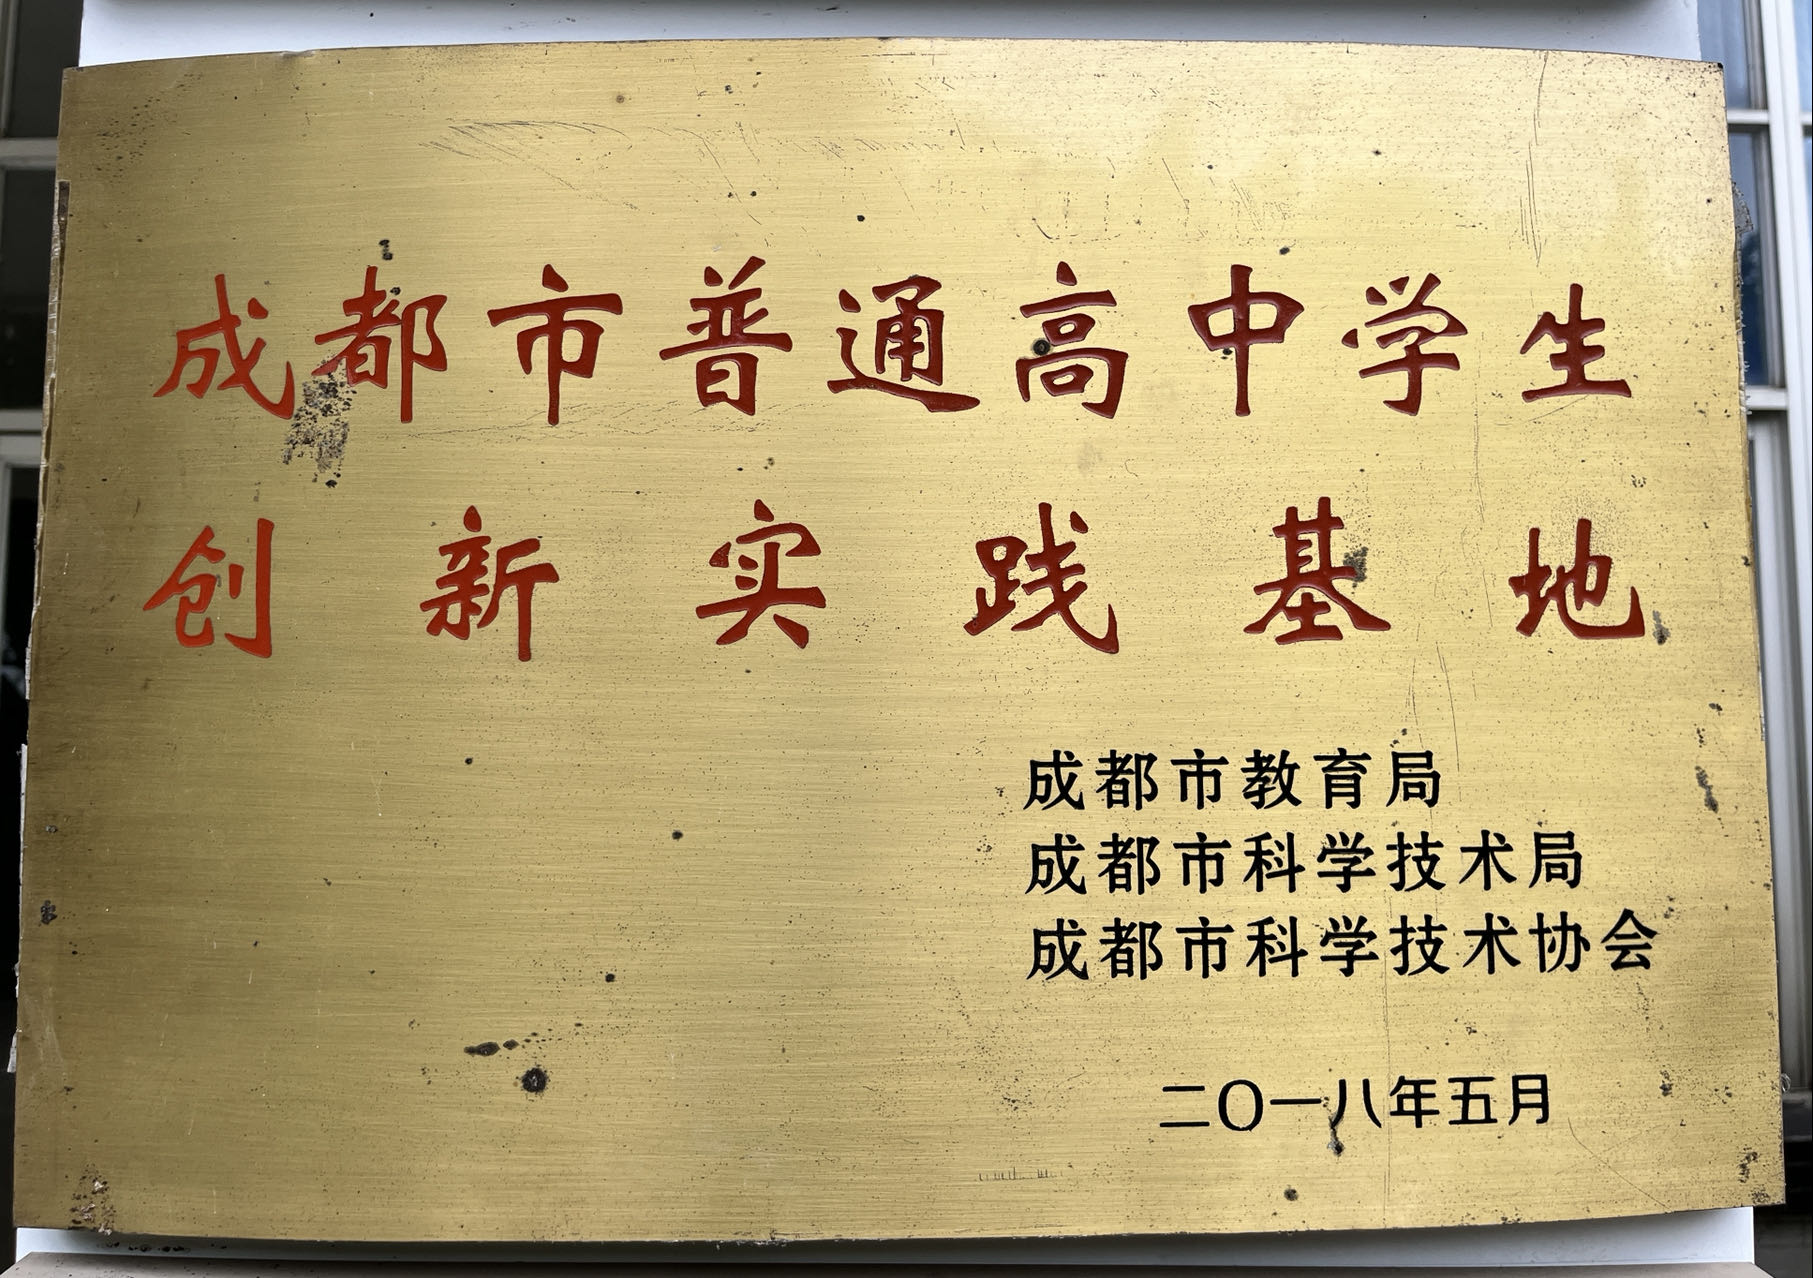 成都市普通高中学生
创新实践基地
成都市教育局
成都市科学技术局
成都市科学技术协会
二〇一八年五月